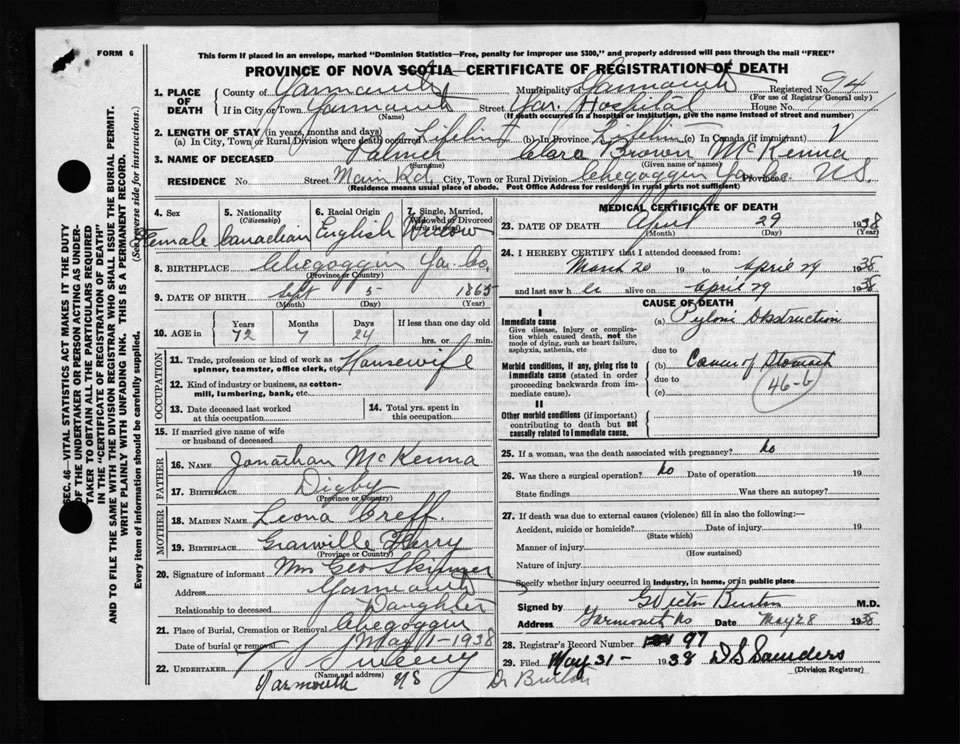 FORM 6
This form if placed in an envelope, marked "Dominion Statistics—Free, penalty for improper use $300," and properly addressed will pass through the mail "FREE"
PROVINCE OF NOVA SCOTIA—CERTIFICATE OF REGISTRATION OF DEATH
1. PLACE OF DEATH
County of Yarmouth Municipality of Yarmouth Registered No. 94
(For use of Registrar General only)
If in City or Town Yarmouth Street Yar. Hospital House No.
(If death occurred in a hospital or institution, give the name instead of street and number)
2. LENGTH OF STAY (in years, months and days)
(a) In City, Town or Rural Division where death occurred Lifetime (b) In Province Lifetime (c) In Canada (if immigrant)
3. NAME OF DECEASED Palmer Clara Brown McKenna
(Surname) (Given name or names)
RESIDENCE No. Street Main Rd. City, Town or Rural Division Chegoggin Yar. Co. Province N.S.
(Residence means usual place of abode. Post Office Address for residents in rural parts not sufficient)
4. Sex Female
5. Nationality (Citizenship) Canadian
6. Racial Origin English
7. Single, Married, Widowed or Divorced (write the word) Widow
8. BIRTHPLACE Chegoggin Ya. Co.
(Province or Country)
9. DATE OF BIRTH Sept 5 1865
(Month) (Day) (Year)
10. AGE in Years 72 Months 7 Days 24 If less than one day old hrs. or min.
OCCUPATION
11. Trade, profession or kind of work as spinner, teamster, office clerk, etc. Housewife
12. Kind of industry or business, as cotton-mill, lumbering, bank, etc.
13. Date deceased last worked at this occupation
14. Total yrs. spent in this occupation
15. If married give name of wife or husband of deceased
FATHER
16. NAME Jonathan McKenna
17. BIRTHPLACE Digby
(Province or Country)
MOTHER
18. MAIDEN NAME Leona Greff.
19. BIRTHPLACE Granville Ferry
(Province or Country)
20. Signature of informant Mrs Geo Skinner
Address Yarmouth
Relationship to deceased Daughter
21. Place of Burial, Cremation or Removal Chegoggin
Date of burial or removal May 1-1938
22. UNDERTAKER Sweeny
(Name and address)
Yarmouth NS
Dr Burton
MEDICAL CERTIFICATE OF DEATH
23. DATE OF DEATH April 29 1938
(Month) (Day) (Year)
24. I HEREBY CERTIFY that I attended deceased from:
March 20 19 to April 29 1938
and last saw h er alive on April 29 1938
CAUSE OF DEATH
I
Immediate cause
Give disease, injury or complication which caused death, not the mode of dying, such as heart failure, asphyxia, asthenia, etc
(a) Pyloric Obstruction
due to
Morbid conditions, if any, giving rise to immediate cause (stated in order proceeding backwards from immediate cause).
(b) Cancer of Stomach
due to
(c)
46-b
II
Other morbid conditions (if important) contributing to death but not causally related to immediate cause.
25. If a woman, was the death associated with pregnancy? No
26. Was there a surgical operation? No Date of operation 19
State findings Was there an autopsy?
27. If death was due to external causes (violence) fill in also the following:—
Accident, suicide or homicide? Date of injury 19
(State which)
Manner of injury
(How sustained)
Nature of injury
Specify whether injury occurred in industry, in home, or in public place
Signed by G Victor Burton M.D.
Address Yarmouth NS Date May 28 1938
28. Registrar's Record Number 97
29. Filed May 31- 1938 D S Saunders
(Division Registrar)
SEC. 46 VITAL STATISTICS ACT MAKES IT THE DUTY
OF THE UNDERTAKER OR PERSON ACTING AS UNDERTAKER TO OBTAIN ALL THE PARTICULARS REQUIRED
IN THE "CERTIFICATE OF REGISTRATION OF DEATH"
AND TO FILE THE SAME WITH THE DIVISION REGISTRAR WHO SHALL ISSUE THE BURIAL PERMIT.
WRITE PLAINLY WITH UNFADING INK. THIS IS A PERMANENT RECORD.
Every item of information should be carefully supplied. (See reverse side for instructions.)